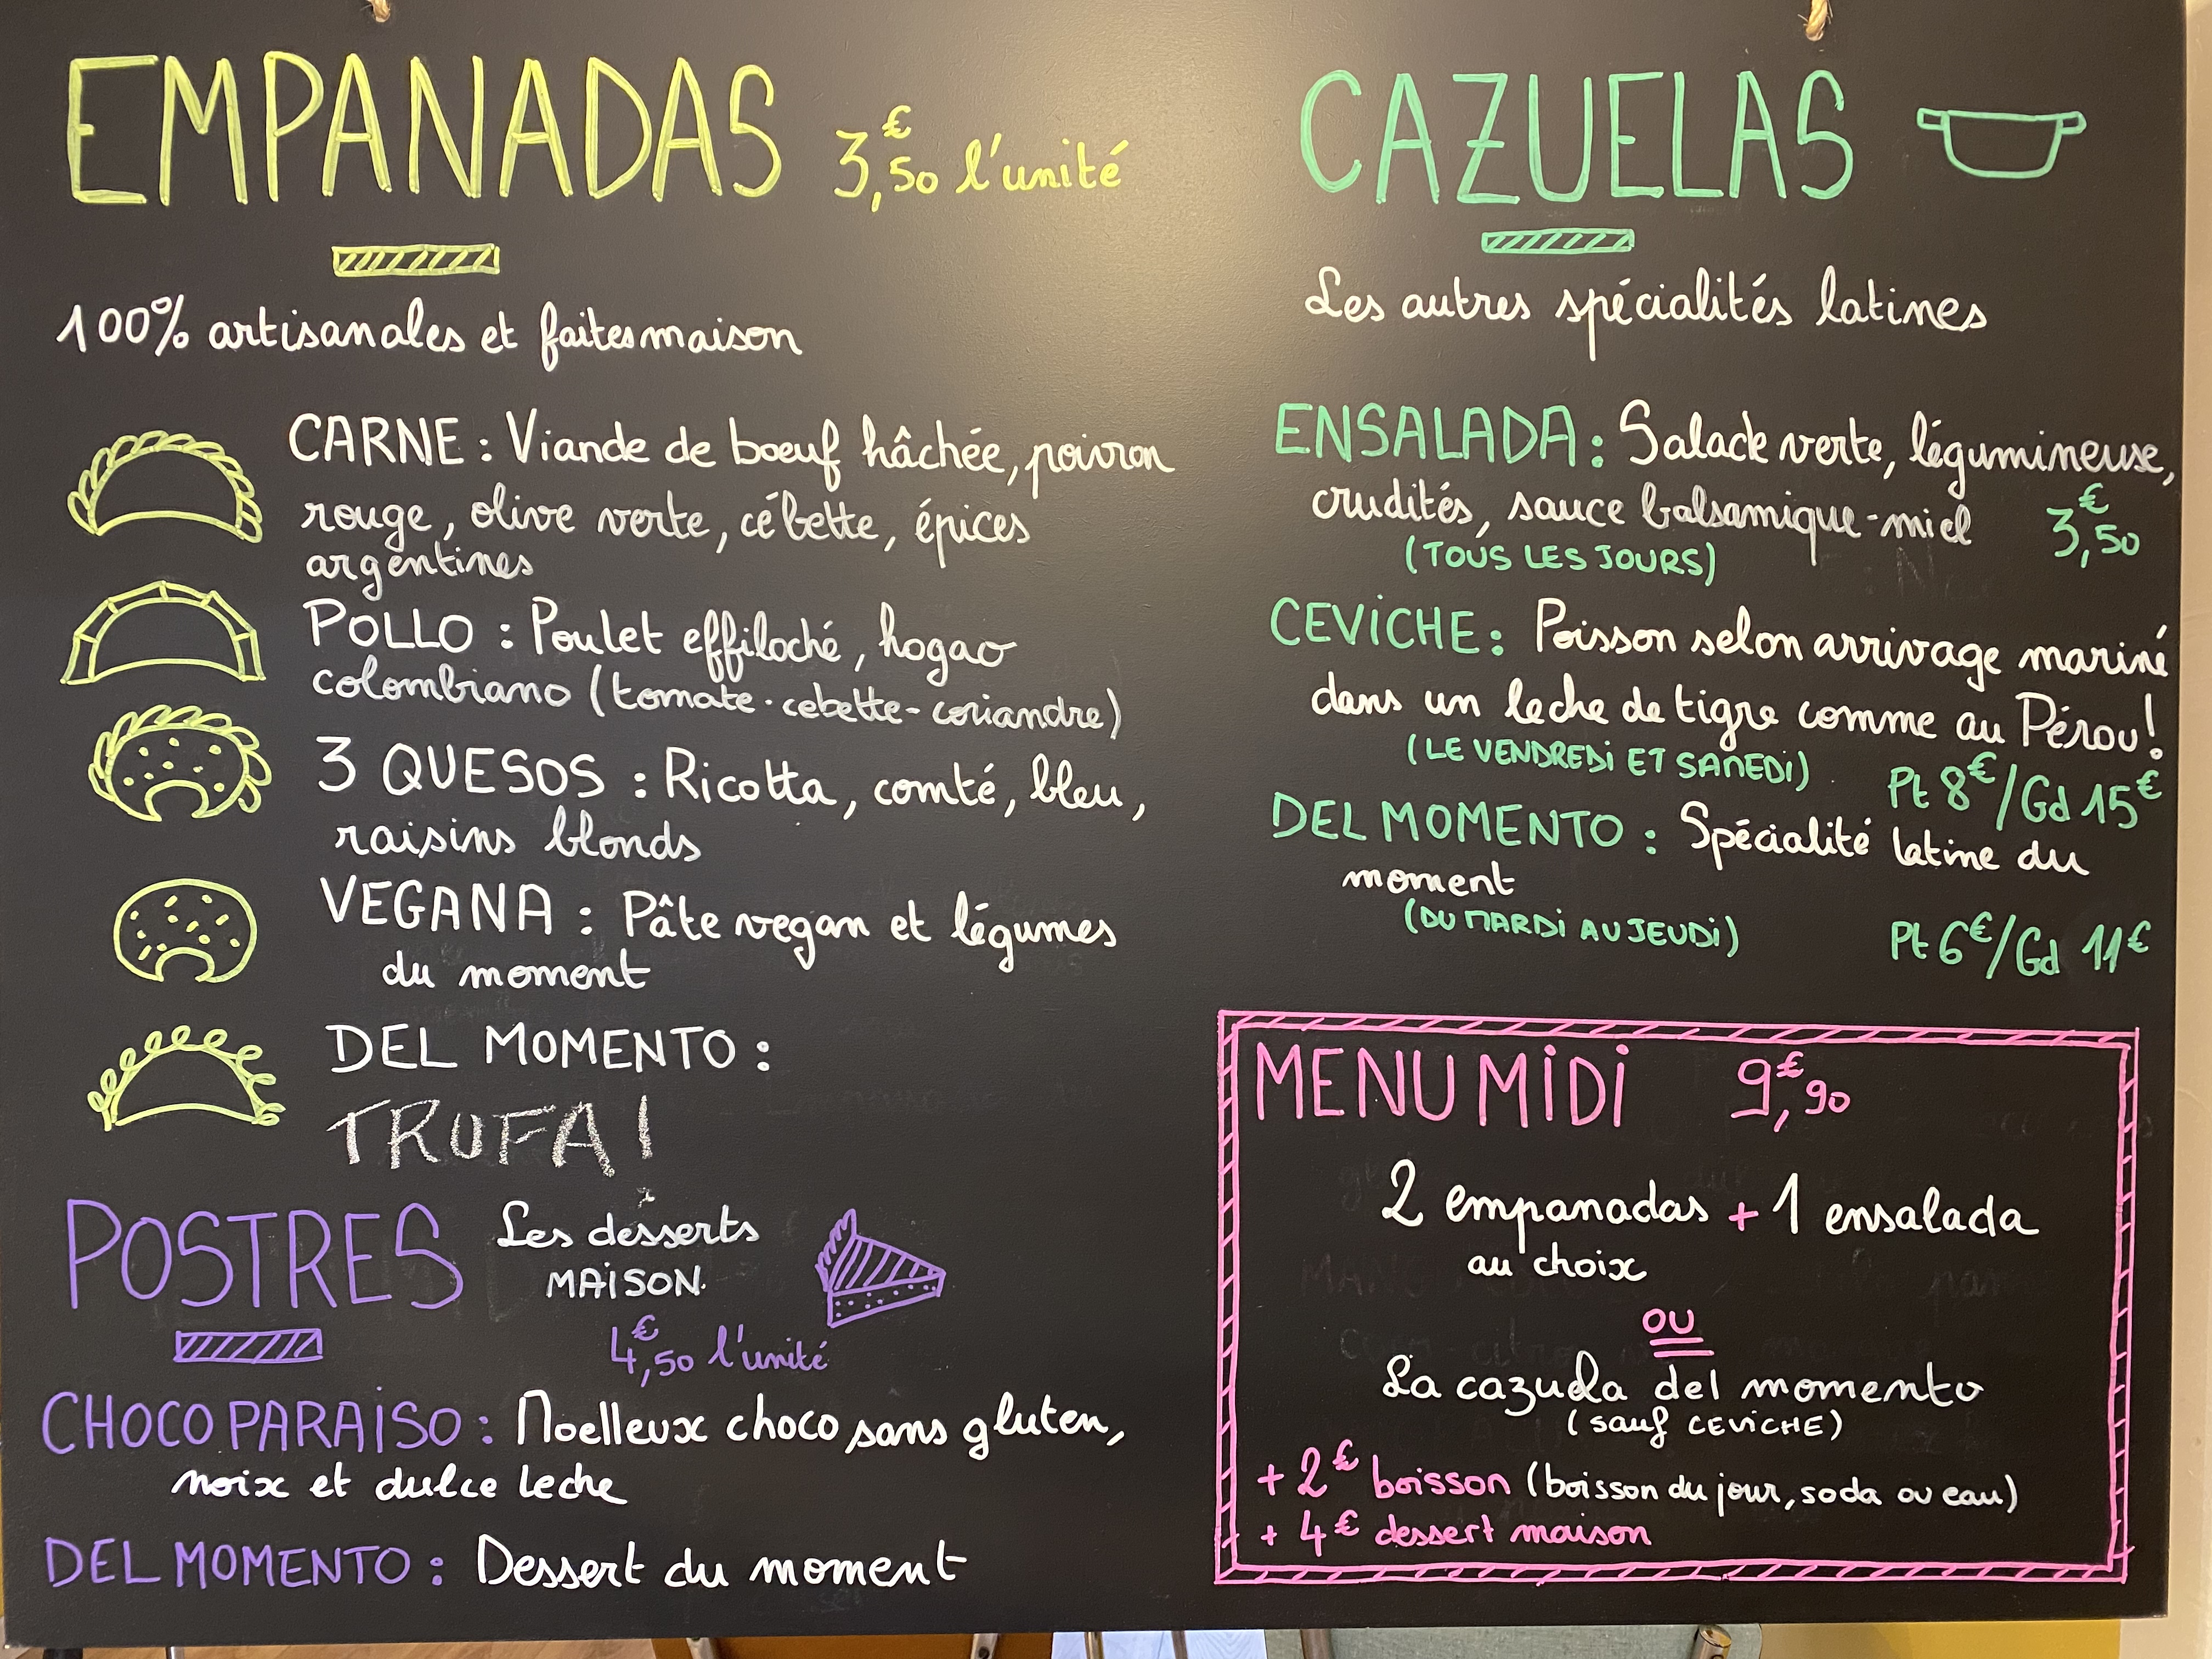 EMPANADAS 3,50€ l'unité
100% artisanales et faites maison
CARNE : Viande de bœuf hâchée, poivron
rouge, olive verte, cébette, épices
argentines
POLLO : Poulet effiloché, hogao
colombiano (tomate - cebette - coriandre)
3 QUESOS : Ricotta, comté, bleu,
raisins blonds
VEGANA : Pâte vegan et légumes
du moment
DEL MOMENTO :
TRUFA !
POSTRES Les desserts
MAISON
4,50€ l'unité
CHOCO PARAISO : Moelleux choco sans gluten,
noix et dulce leche
DEL MOMENTO : Dessert du moment
CAZUELAS
Les autres spécialités latines
ENSALADA : Salade verte, légumineuse,
crudités, sauce balsamique-miel 3,50€
(TOUS LES JOURS)
CEVICHE : Poisson selon arrivage mariné
dans un leche de tigre comme au Pérou !
(LE VENDREDI ET SAMEDI) Pt 8€/Gd 15€
DEL MOMENTO : Spécialité latine du
moment
(DU MARDI AU JEUDI) Pt 6€/Gd 11€
MENU MIDI 9,90€
2 empanadas + 1 ensalada
au choix
OU
La cazuela del momento
(sauf CEVICHE)
+ 2€ boisson (boisson du jour, soda ou eau)
+ 4€ dessert maison